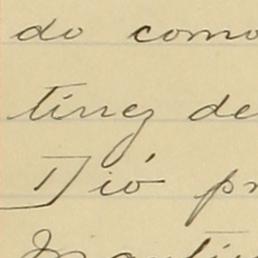 do como
tínez de
Dió pr
Martín